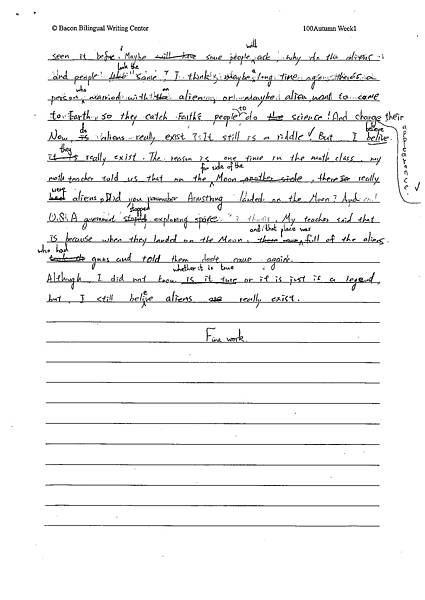 © Bacon Bilingual Writing Center 100Autumn Week1
will
seen it before. Maybe will some people ask, why do the aliens
look the
and people same? I think maybe long time ago, there's a
who an
person, married with alien, or maybe alien want to come
to
to Earth, so they catch Earth's people do the science! And change their
appearance.
do believe
Now, is aliens really exist? It still is a riddle! But I belive
they
it is really exist. The reason is one time in the math class, my
far side of the
math teacher told us that on the Moon another side, there're really
were
had aliens. Did you remember Armstrong landed on the Moon? And
stopped
U.S.A government stoped exploring space. My teacher said that
and that place was
is because when they landed on the Moon, full of the aliens
who had
guns and told them don't come again.
whether it is true
Although, I did not know is it ture or it is just is a legend,
but, I still belive aliens are really exist.
Fine work.